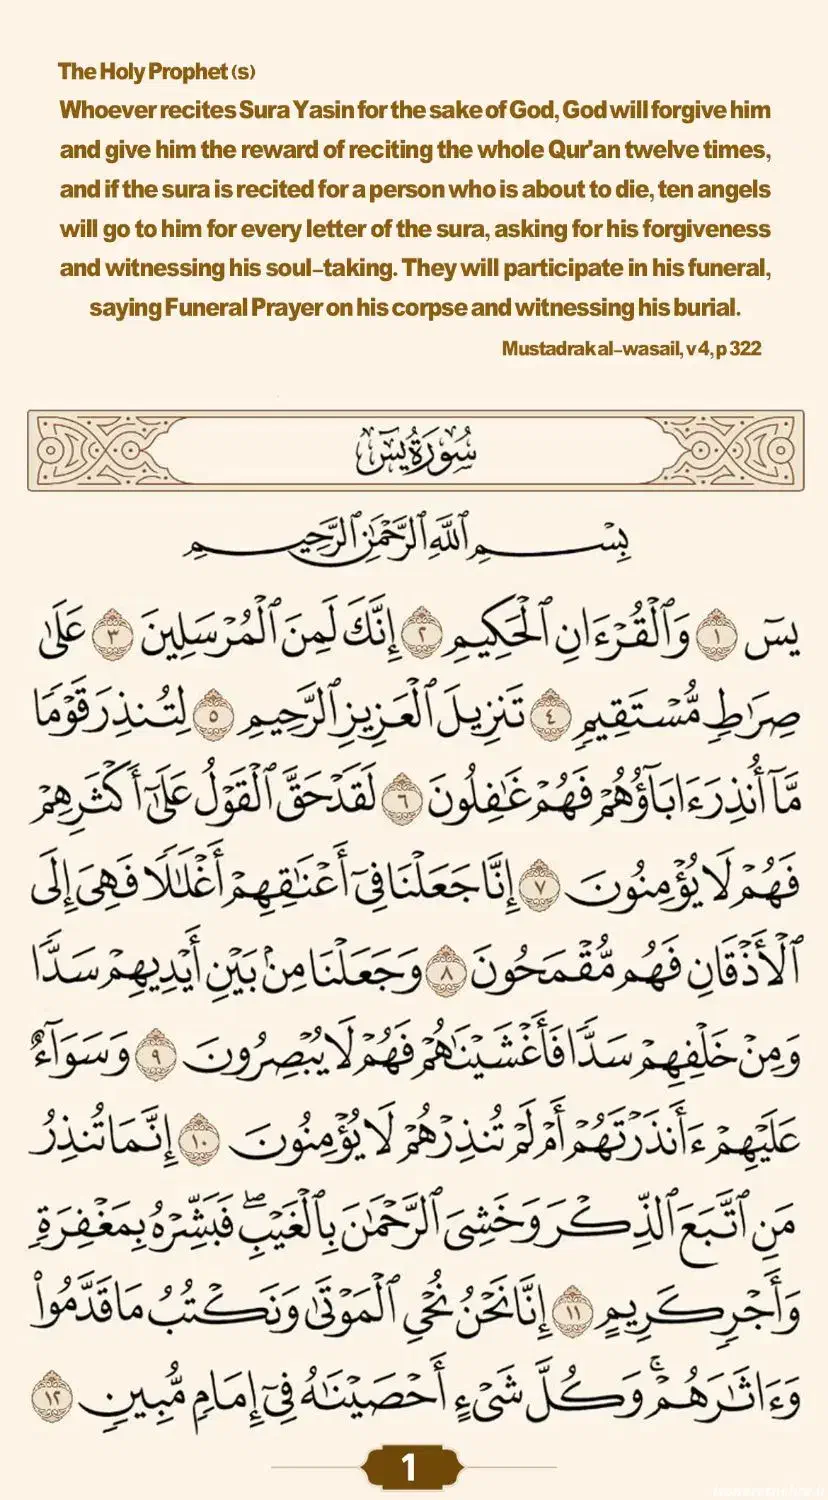 The Holy Prophet (s)
Whoever recites Sura Yasin for the sake of God, God will forgive him
and give him the reward of reciting the whole Qur'an twelve times,
and if the sura is recited for a person who is about to die, ten angels
will go to him for every letter of the sura, asking for his forgiveness
and witnessing his soul-taking. They will participate in his funeral,
saying Funeral Prayer on his corpse and witnessing his burial.
Mustadrak al-wasail, v 4, p 322
سُورَةُ يسٓ
بِسۡمِ ٱللَّهِ ٱلرَّحۡمَٰنِ ٱلرَّحِيمِ
يسٓ ١ وَٱلۡقُرۡءَانِ ٱلۡحَكِيمِ ٢ إِنَّكَ لَمِنَ ٱلۡمُرۡسَلِينَ ٣ عَلَىٰ
صِرَٰطٖ مُّسۡتَقِيمٖ ٤ تَنزِيلَ ٱلۡعَزِيزِ ٱلرَّحِيمِ ٥ لِتُنذِرَ قَوۡمٗا
مَّآ أُنذِرَ ءَابَآؤُهُمۡ فَهُمۡ غَٰفِلُونَ ٦ لَقَدۡ حَقَّ ٱلۡقَوۡلُ عَلَىٰٓ أَكۡثَرِهِمۡ
فَهُمۡ لَا يُؤۡمِنُونَ ٧ إِنَّا جَعَلۡنَا فِيٓ أَعۡنَٰقِهِمۡ أَغۡلَٰلٗا فَهِيَ إِلَى
ٱلۡأَذۡقَانِ فَهُم مُّقۡمَحُونَ ٨ وَجَعَلۡنَا مِنۢ بَيۡنِ أَيۡدِيهِمۡ سَدّٗا
وَمِنۡ خَلۡفِهِمۡ سَدّٗا فَأَغۡشَيۡنَٰهُمۡ فَهُمۡ لَا يُبۡصِرُونَ ٩ وَسَوَآءٌ
عَلَيۡهِمۡ ءَأَنذَرۡتَهُمۡ أَمۡ لَمۡ تُنذِرۡهُمۡ لَا يُؤۡمِنُونَ ١٠ إِنَّمَا تُنذِرُ
مَنِ ٱتَّبَعَ ٱلذِّكۡرَ وَخَشِيَ ٱلرَّحۡمَٰنَ بِٱلۡغَيۡبِۖ فَبَشِّرۡهُ بِمَغۡفِرَةٖ
وَأَجۡرٖ كَرِيمٍ ١١ إِنَّا نَحۡنُ نُحۡيِ ٱلۡمَوۡتَىٰ وَنَكۡتُبُ مَا قَدَّمُواْ
وَءَاثَٰرَهُمۡۚ وَكُلَّ شَيۡءٍ أَحۡصَيۡنَٰهُ فِيٓ إِمَامٖ مُّبِينٖ ١٢
1